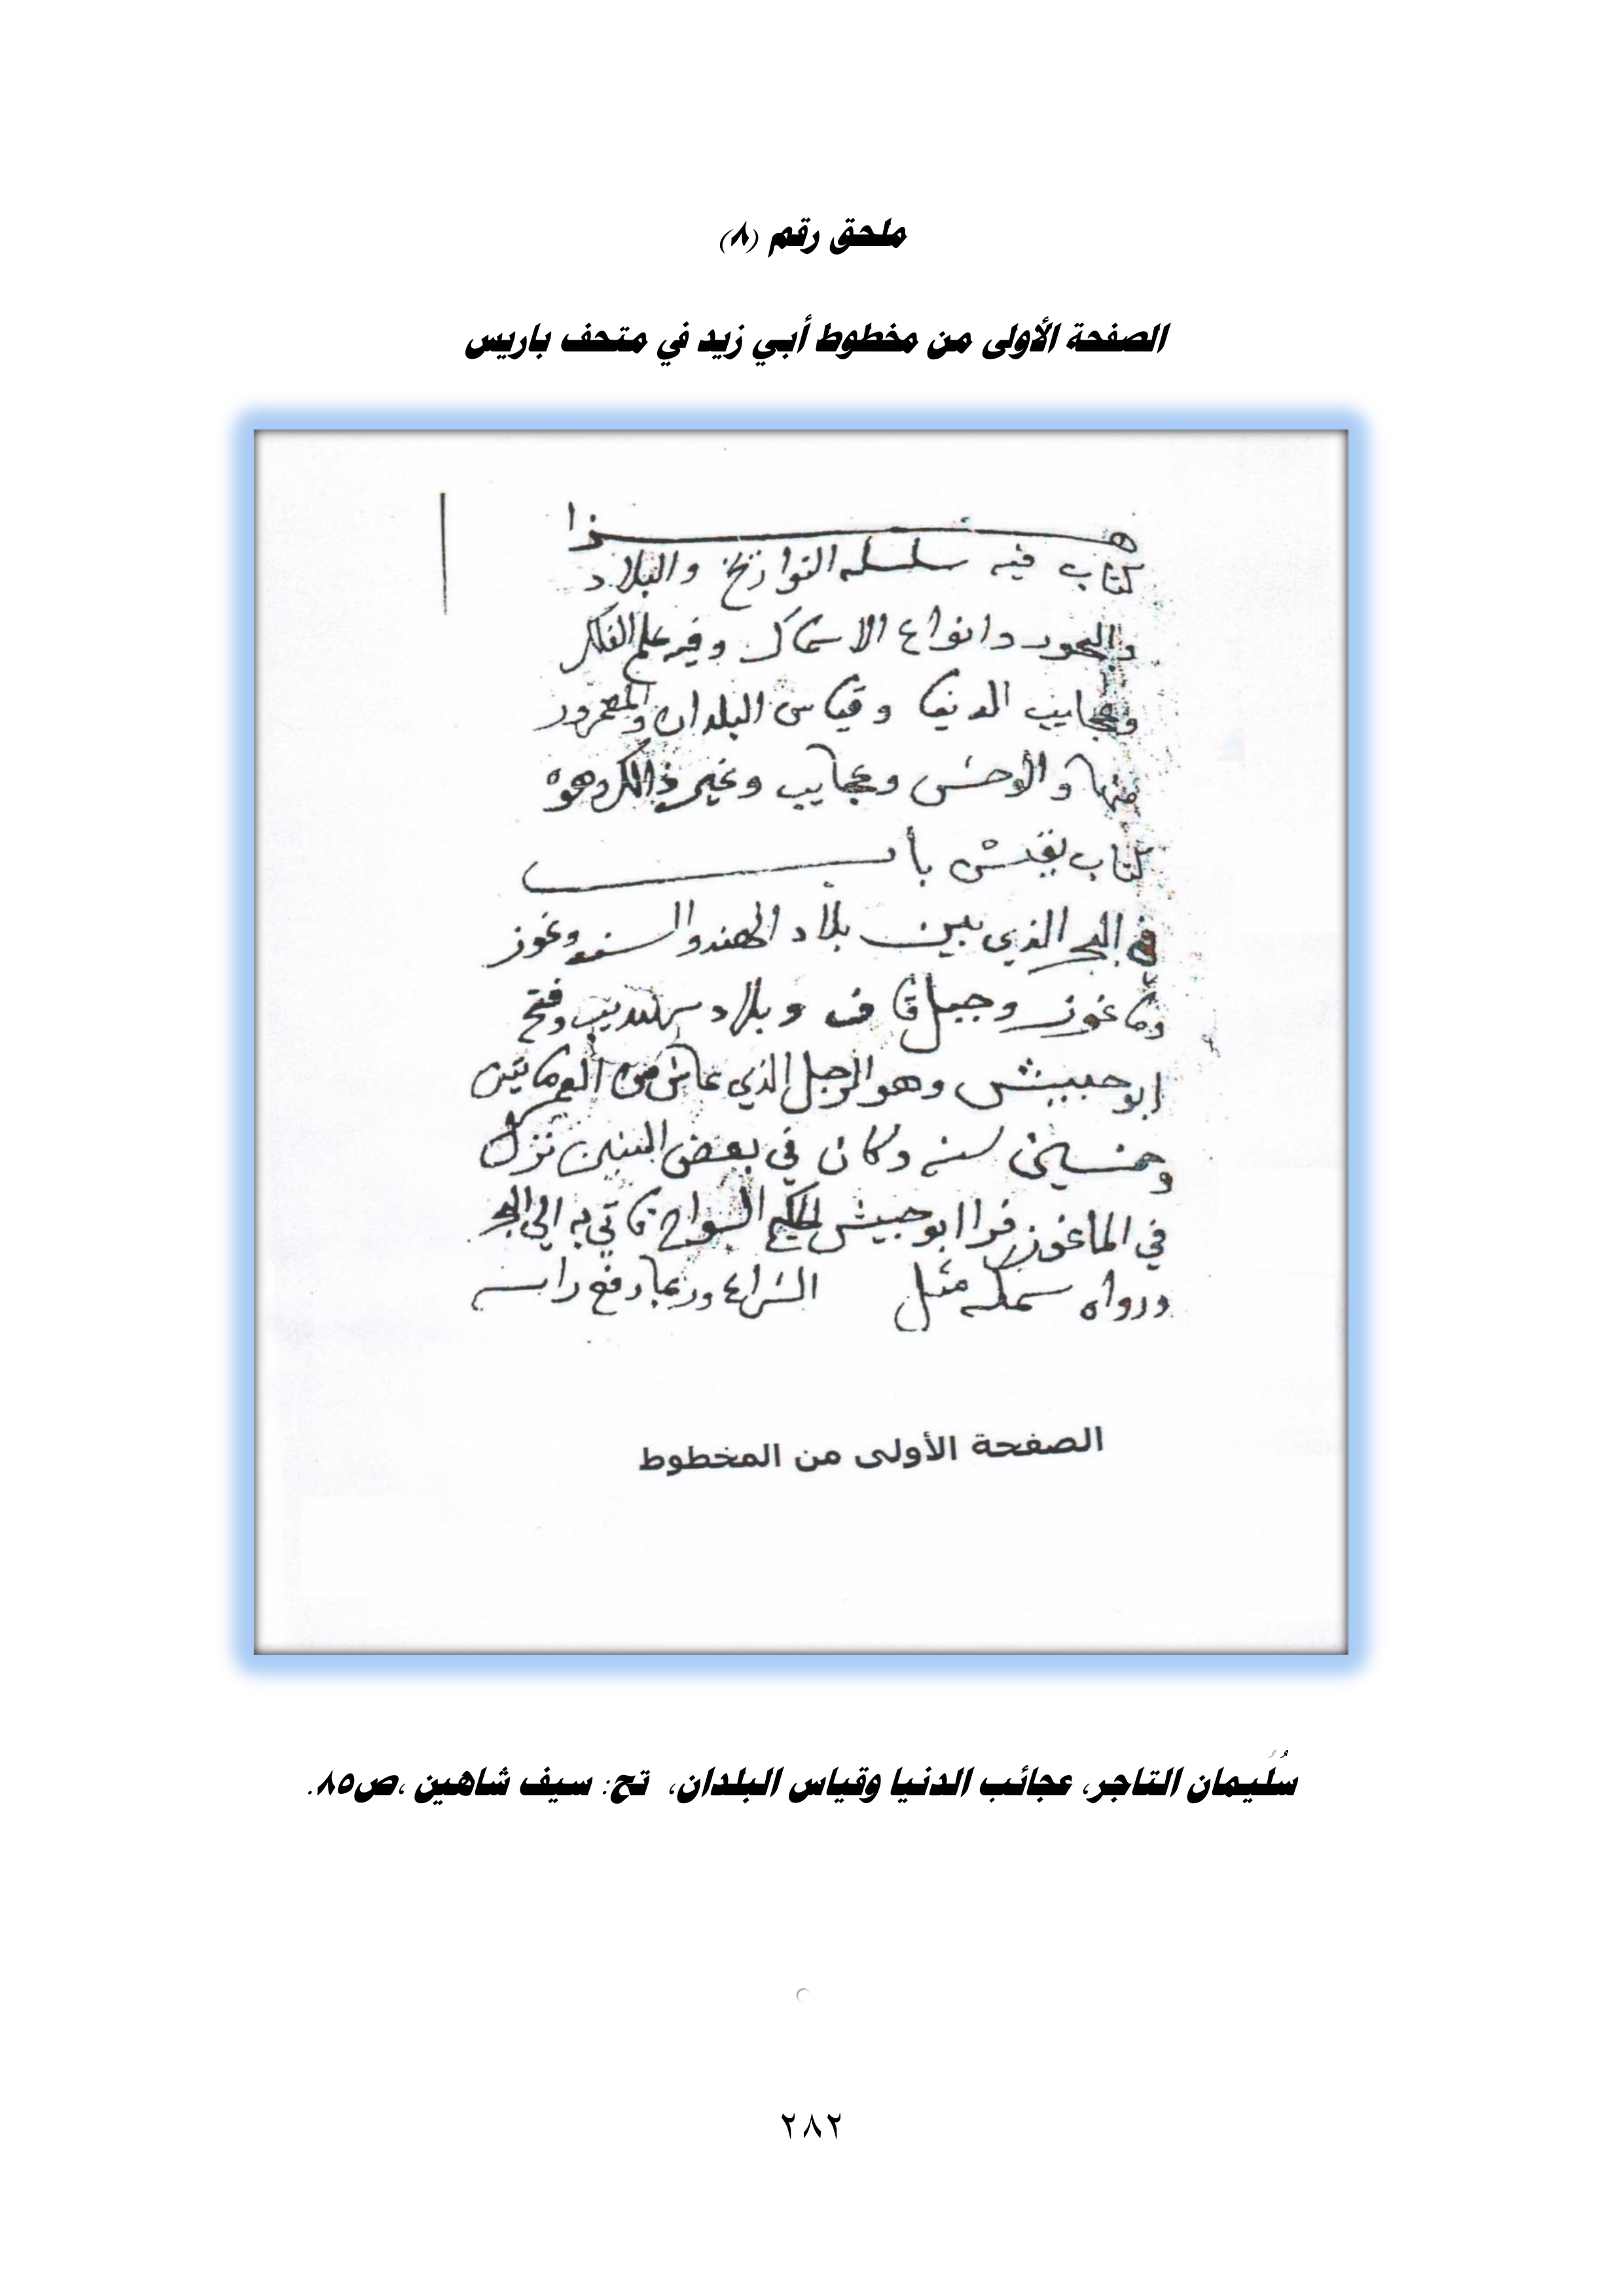 ملحق رقم (٨)
الصفحة الأولى من مخطوط أبي زيد في متحف باريس
هذا
كتاب فيه سلسله التواريخ والبلاد
والبحور وانواع الاسماك وفيه علم الفلك
وعجايب الدنيا وقياس البلدان والمعمور
منها والوحش وعجايب وغير ذالك وهوه
كتاب نفيس باب
في البحر الذي بين بلاد الهند والسند وغوز
وماغوز وجبل قاف وبلاد سرنديب وفتح
ابو حبيش وهو الرجل الذي عاش من العمر مايتين
وخمسين سنه وكان في بعض السنين نزل
في الماغوز فراا ابو حبيش الحكيم السواح فاتي به الي البحر
ورواه سمكه مثل الشراع وربما رفع راسه
الصفحة الأولى من المخطوط
سُلَيمان التاجر، عجائب الدنيا وقياس البلدان، تح: سيف شاهين ،ص٨٥.
٢٨٢